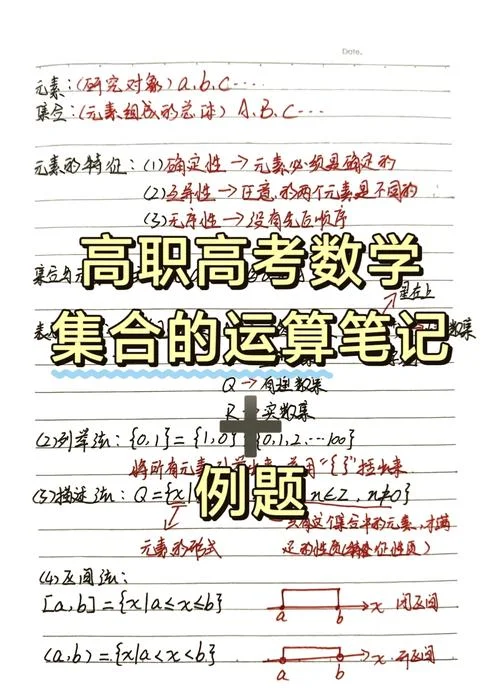 Date.
元素:(研究对象) a、b、c····
集合:(元素组成的总体) A、B、C····
元素的特征:(1)确定性→元素必须是确定的
(2)互异性→任意的两个元素是不同的
(3)无序性→没有先后顺序
高职高考数学
集合与元
集合的运算笔记
Q→有理数集
R→实数集
+
(2)列举法:{0,1}={1,0} {0,1,2···100}
将所有元素 用"{ }"括出来
例题
(3)描述法:Q={x| n∈Z, n≠0}
只有这个集合中的元素,才满
元素的形式 足的性质(特征性质)
(4)区间法:
[a,b]={x|a≤x≤b} a b x 闭区间
(a,b)={x|a<x<b} a b x 开区间